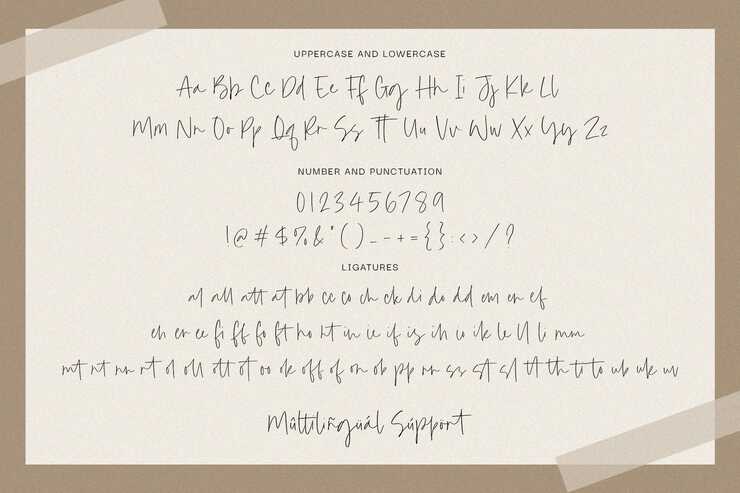 UPPERCASE AND LOWERCASE
Aa Bb Cc Dd Ee Ff Gg Hh Ii Jj Kk Ll
Mm Nn Oo Pp Qq Rr Ss Tt Uu Vv Ww Xx Yy Zz
NUMBER AND PUNCTUATION
0123456789
!@#$%&*()_-+={}:<>/?
LIGATURES
al all att at bb cc co ch ck di do dd em en ef
eh er ee fi ff fo ft ho ht in ie if is ih io ik le ll li mm
mt nt nn rt ol oll ott ot oo ok off of on ob pp rr ss st sl tt th ti to ub uk uv
Múltilíñgüál Súppört